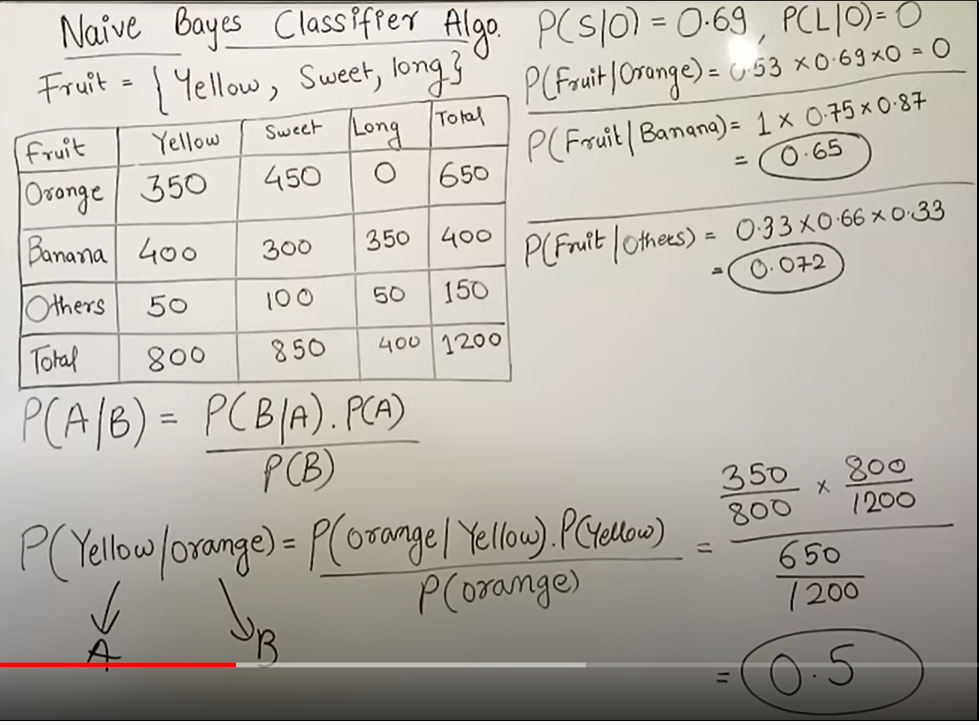 Naive Bayes Classifier Algo.
Fruit = { Yellow, Sweet, long}
Fruit Yellow Sweet Long Total
Orange 350 450 0 650
Banana 400 300 350 400
Others 50 100 50 150
Total 800 850 400 1200
P(A/B) = P(B/A) . P(A)
P(B)
P(Yellow/orange) = P(orange/Yellow).P(Yellow)
P(orange)
= 350/800 × 800/1200
650/1200
A B
= 0.5
P(S/O) = 0.69, P(L/O) = 0
P(Fruit/Orange) = 0.53 × 0.69 × 0 = 0
P(Fruit/Banana) = 1 × 0.75 × 0.87
= 0.65
P(Fruit/Others) = 0.33 × 0.66 × 0.33
= 0.072